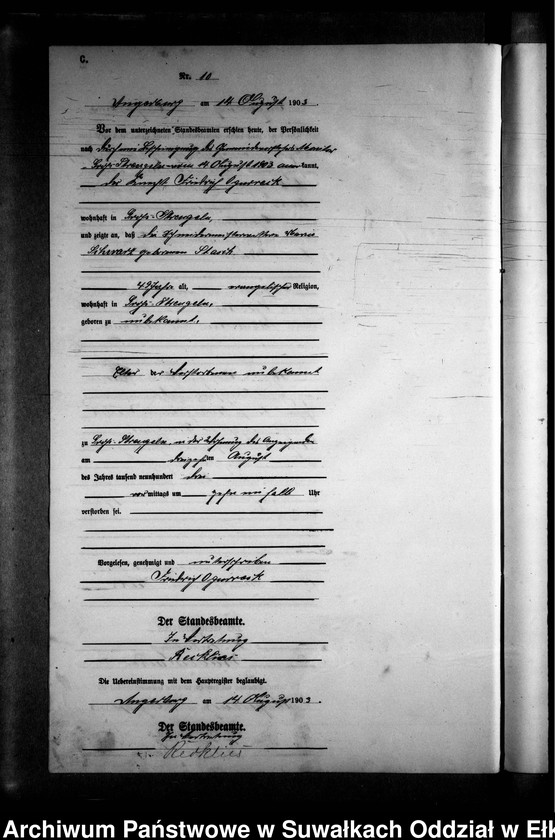 C.
Nr. 10
Angerburg am 14 August 1903.
Vor dem unterzeichneten Standesbeamten erschien heute, der Persönlichkeit
nach durch eine Bescheinigung des Gemeindevorstehers
Groß-Strengeln vom 14 August 1903 anerkannt,
der Friedrich
wohnhaft in Groß-Strengeln,
und zeigte an, daß die Schneidermeisterwittwe Marie
geborenen
49 Jahre alt, evangelischer Religion,
wohnhaft in Groß-Strengeln,
geboren zu unbekannt,
der Verstorbenen unbekannt
zu Groß-Strengeln, in der Wohnung des Anzeigenden
am August
des Jahres tausend neunhundert drei
vormittags um zehn ein halb Uhr
verstorben sei.
Vorgelesen, genehmigt und unterschrieben
Friedrich
Der Standesbeamte.
In Vertretung
Die Uebereinstimmung mit dem Hauptregister beglaubigt.
Angerburg am 14. August 1903.
Der Standesbeamte.
In Vertretung
Archiwum Państwowe w Suwałkach Oddział w Ełk